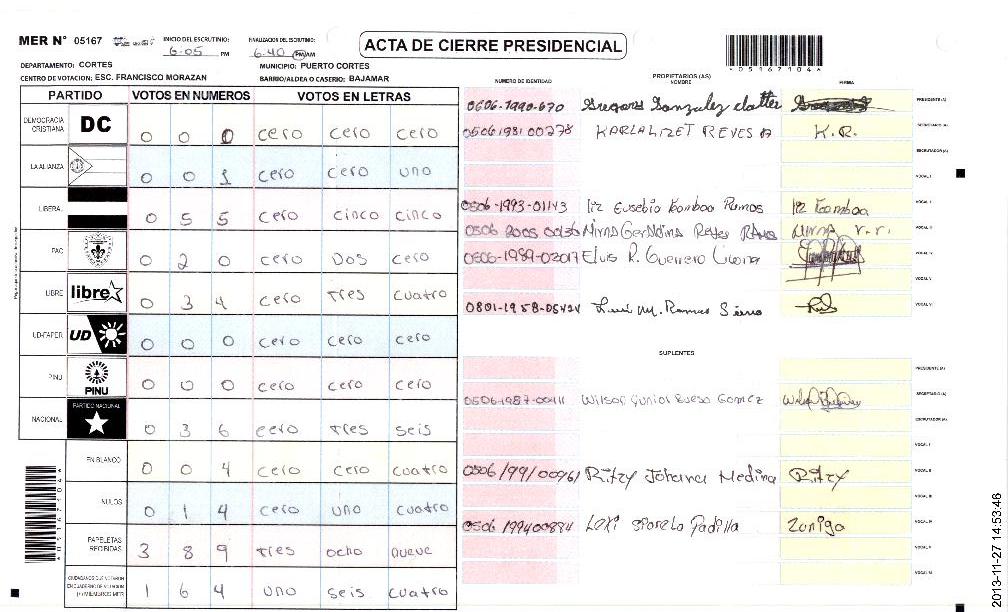 MER N° 05167
INICIO DEL ESCRUTINIO:
6-05 PM
FINALIZACION DEL ESCRUTINIO:
6-40 PM AM
ACTA DE CIERRE PRESIDENCIAL
*05167104*
DEPARTAMENTO: CORTES
MUNICIPIO: PUERTO CORTES
CENTRO DE VOTACION: ESC. FRANCISCO MORAZAN
BARRIO/ALDEA O CASERIO: BAJAMAR
PARTIDO VOTOS EN NUMEROS VOTOS EN LETRAS
DEMOCRACIA CRISTIANA DC 0 0 0 cero cero cero
LA ALIANZA 0 0 1 cero cero uno
LIBERAL 0 5 5 cero cinco cinco
PAC 0 2 0 cero Dos cero
LIBRE libre 0 3 4 cero tres cuatro
UD-FAPER UD 0 0 0 cero cero cero
PINU PINU 0 0 0 cero cero cero
NACIONAL PARTIDO NACIONAL 0 3 6 cero tres seis
EN BLANCO 0 0 4 cero cero cuatro
NULOS 0 1 4 cero uno cuatro
PAPELETAS RECIBIDAS 3 8 9 tres ocho nueve
CIUDADANOS QUE VOTARON EN CUADERNO DE VOTACION (+) MIEMBROS MER 1 6 4 uno seis cuatro
*05167104*
NUMERO DE IDENTIDAD
PROPIETARIOS (AS)
NOMBRE
FIRMA
0606-1990-670 Gonzalez PRESIDENTE (A)
0506198100278 KARLA LIZET REYES K.R. SECRETARIO (A)
ESCRUTADOR (A)
VOCAL I
0506-1993-01143 Eusebio Ramos VOCAL II
0506 2005 Reyes VOCAL III
0506-1989-02017 Elvis R. Guerrero VOCAL IV
VOCAL V
0801-1958-05424 Luis M. Ramos VOCAL VI
SUPLENTES
PRESIDENTE (A)
0506-1987-00111 Wilson Junior Bueso Gomez SECRETARIO (A)
ESCRUTADOR (A)
VOCAL I
0506/99/00961 Ritzy Johana Medina Ritzy VOCAL II
VOCAL III
0506 199400894 Padilla Zuniga VOCAL IV
VOCAL V
VOCAL VI
2013-11-27 14:53:46